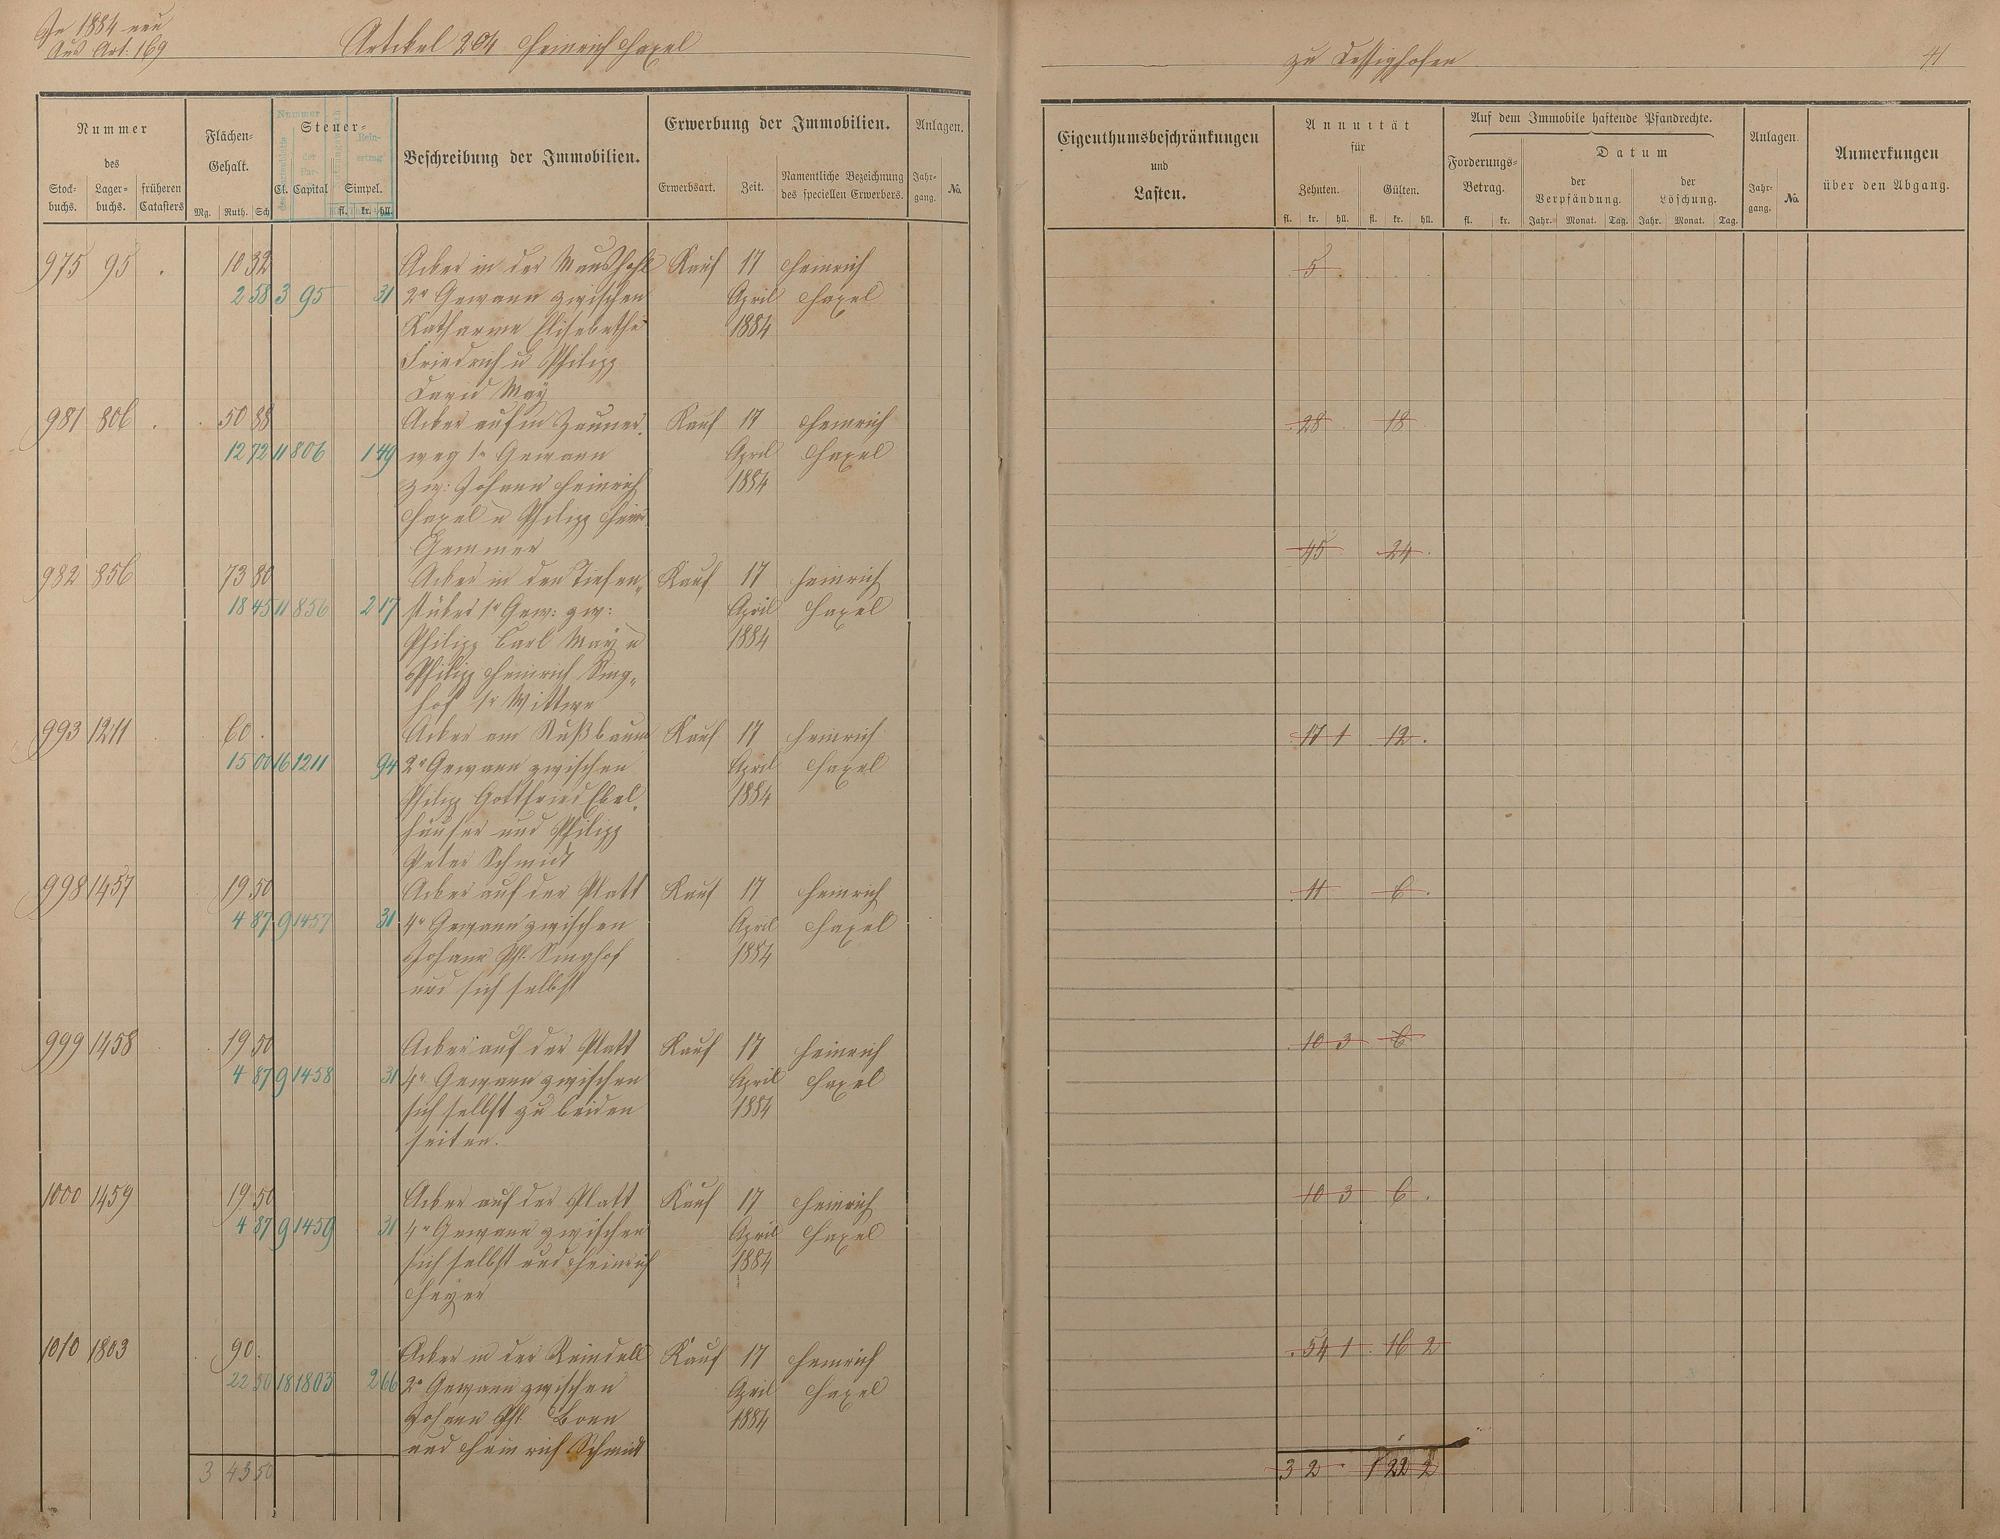 In 1884 neu
Aus Art: 169
Artikel 204 Heinrich Haxel
Nummer
des
Stock-
buchs.
Lager-
buchs.
früheren
Catasters
Flächen-
Gehalt.
Mg. Ruth. Sch
Steuer-
Nummer
der
Par-
Cl. Capital
Rein-
ertrag
Simpel.
fl. kr. hll.
Beschreibung der Immobilien.
Erwerbung der Immobilien.
Erwerbsart. Zeit. Namentliche Bezeichnung
des speciellen Erwerbers.
Anlagen.
Jahr-
gang.
No.
975 95 . 10 32 Acker in der Kauf 17 Heinrich
2 58 3 95 31 2r Gewann zwischen April Haxel
Katharine Elisabethe 1884
Friedrich u Philipp
David May
981 806 . 50 88 Acker auf'm Kauf 17 Heinrich
12 72 11 806 1 49 weg 1r Gewann April Haxel
zw: Johann Heinrich 1884
Haxel u Philipp Heinr.
Gemmer
982 856 73 80 Acker in den Tiefen, Kauf 17 Heinrich
18 45 11 856 2 17 stüber 1r Gew: zw: April Haxel
Philipp Carl May u 1884
Philipp Heinrich Sing,
hof 1r Wittwe
993 1211 60 . Acker am Nußbaum Kauf 17 Heinrich
15 00 16 1211 94 2r Gewann zwischen April Haxel
Philipp Gottfried Ebel, 1884
häuser und Philipp
Peter Schmidt
998 1457 19 50 Acker auf der Platt Kauf 17 Heinrich
4 87 9 1457 31 4r Gewann zwischen April Haxel
Johann Phl. Singhof 1884
und sich selbst
999 1458 19 50 Acker auf der Platt Kauf 17 Heinrich
4 87 9 1458 31 4r Gewann zwischen April Haxel
sich selbst zu beiden 1884
seiten.
1000 1459 19 50 Acker auf der Platt Kauf 17 Heinrich
4 87 9 1459 31 4r Gewann zwischen April Haxel
sich selbst und Heinrich 1884
Heyer
1010 1803 90 . Acker in der Reindell Kauf 17 Heinrich
22 50 18 1803 2 66 2r Gewann zwischen April Haxel
Johann Phl. Born 1884
und Heinrich Schmidt
3 43 50
zu
41
Eigenthumsbeschränkungen
und
Lasten.
Annuität
für
Zehnten. Gülten.
fl. kr. hll. fl. kr. hll.
Auf dem Immobile haftende Pfandrechte.
Forderungs-
Betrag.
fl. kr.
Datum
der
Verpfändung.
Jahr. Monat. Tag.
der
Löschung.
Jahr. Monat. Tag.
Anlagen.
Jahr-
gang.
No.
Anmerkungen
über den Abgang.
5
28 18
45 24
17 1 12
11 6
10 3 6
10 3 6
54 1 16 2
3 2